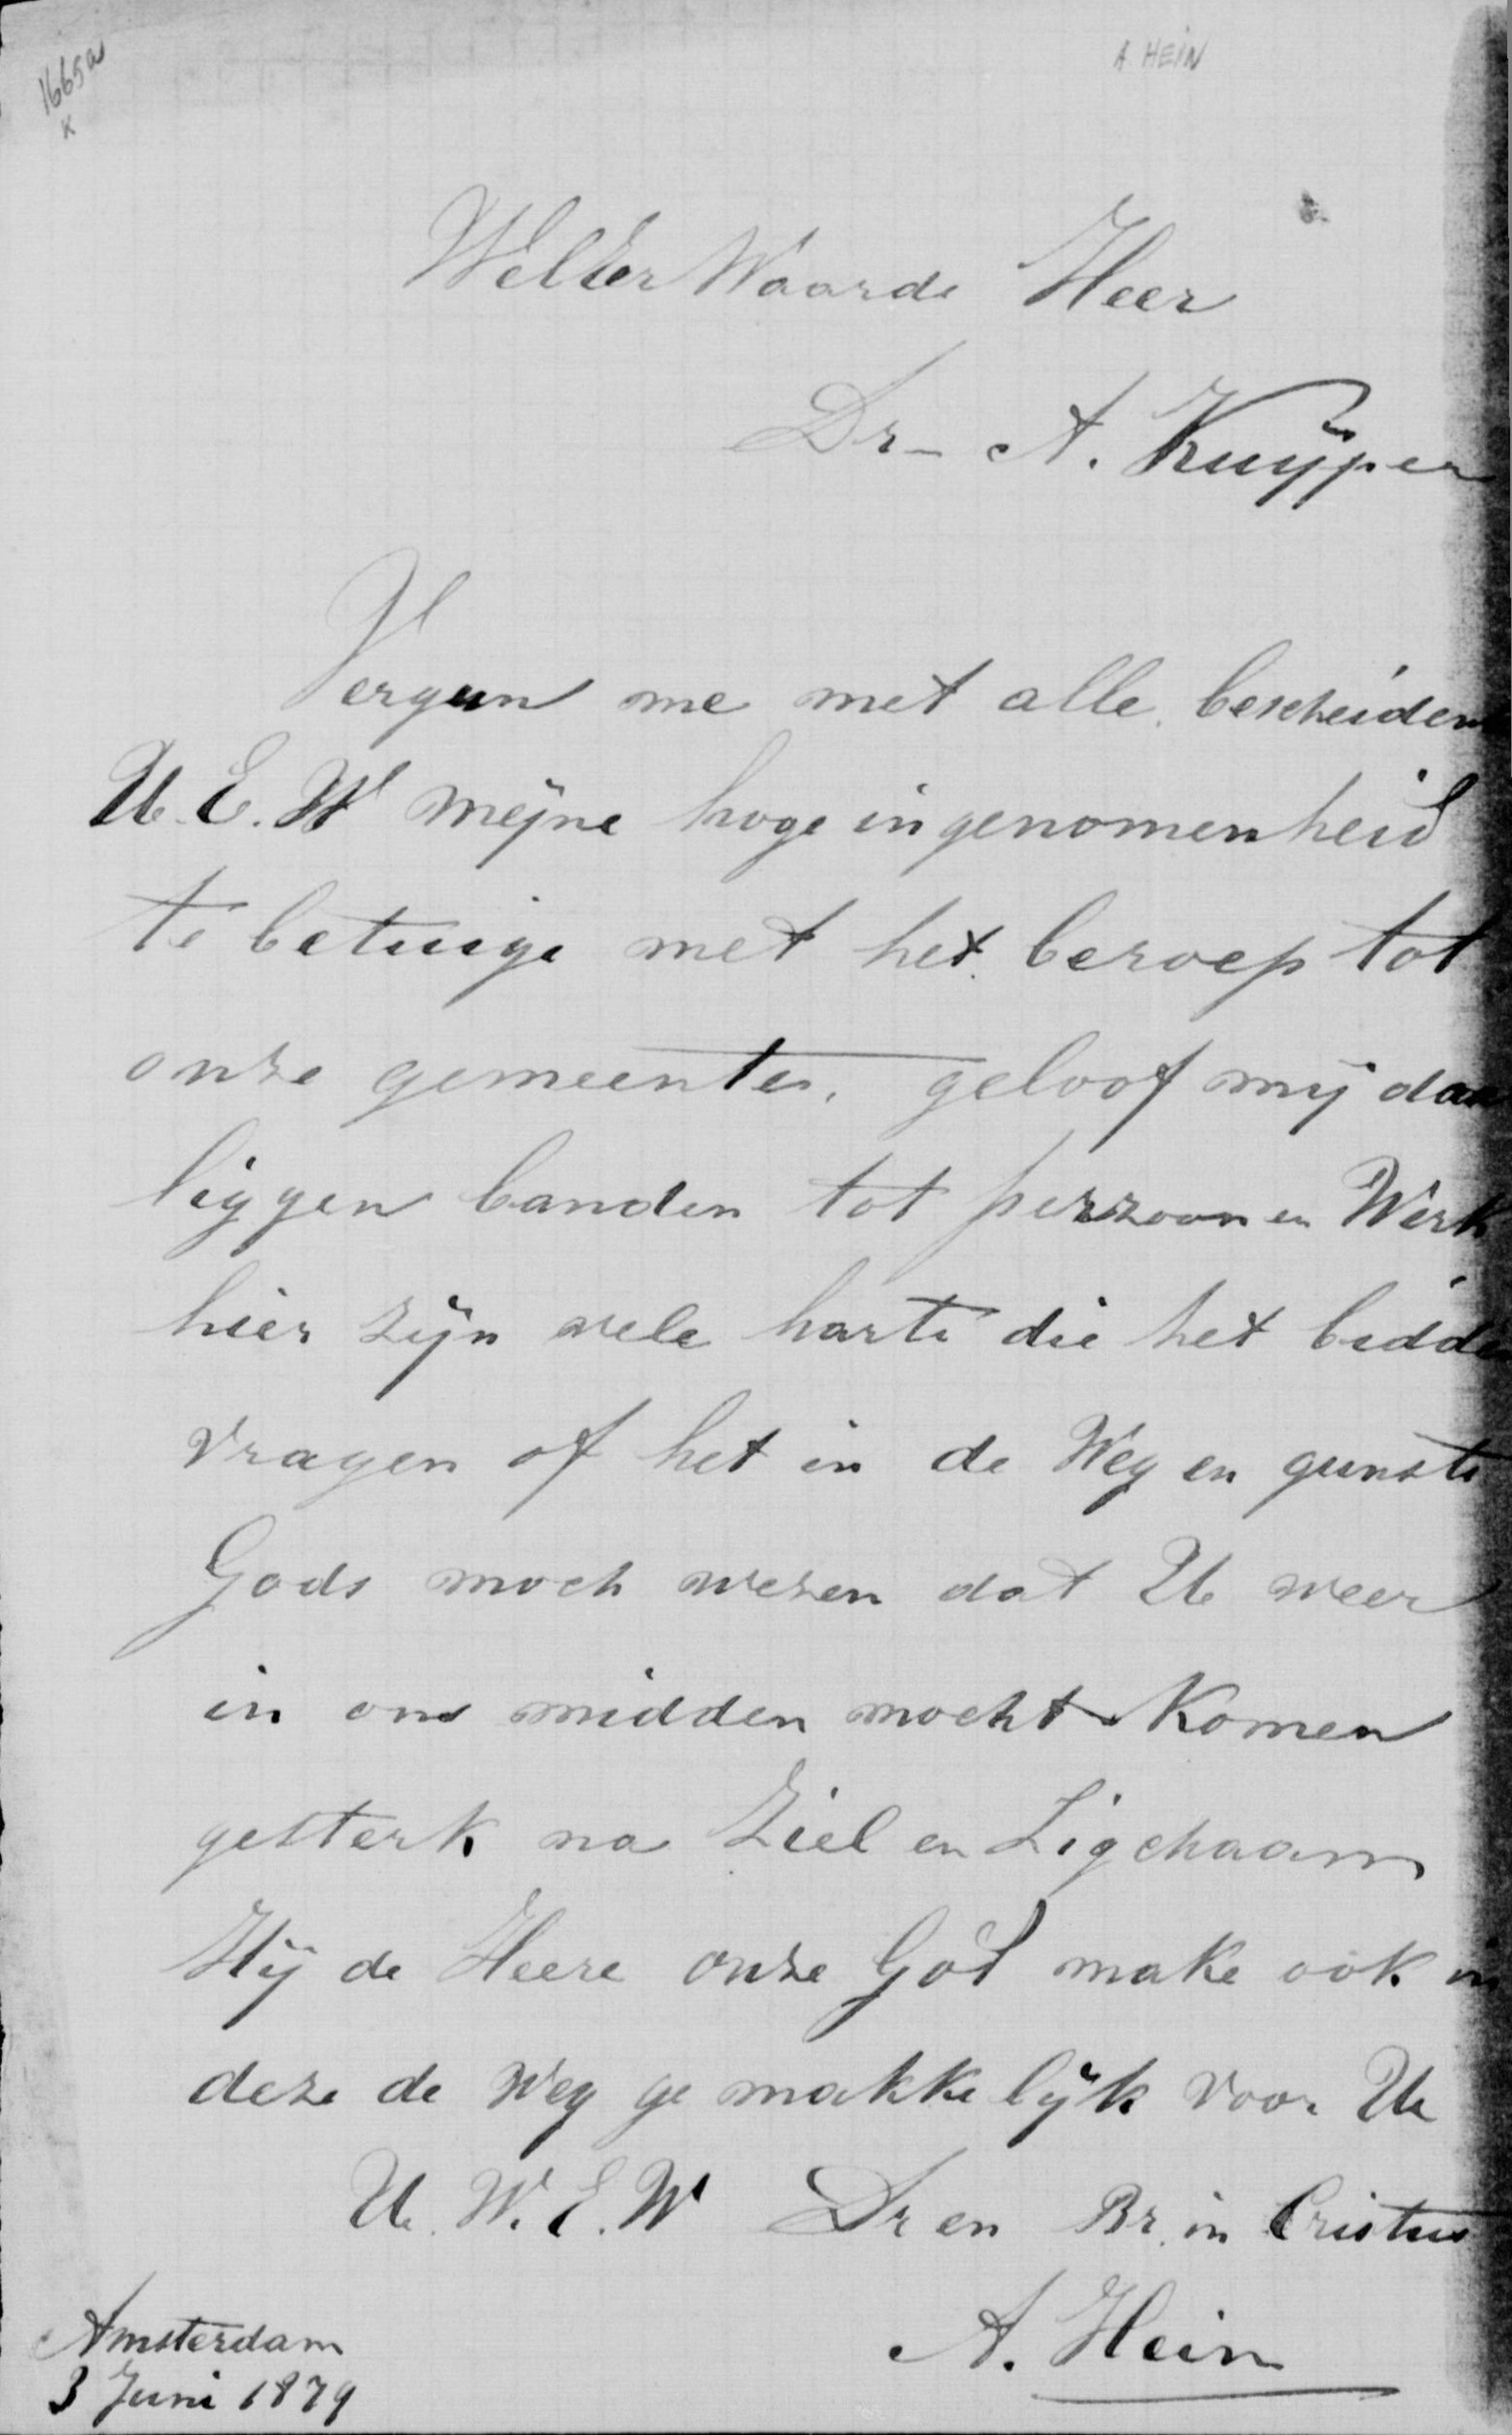 1665a
K
A. HEIN
WelEer Waarde Heer
Dr - A. Kuÿper
Vergun me met alle bescheiden
U. E. W mijne hoge ingenomenheid
te betuige met het beroep tot
onze gemeente, geloof mij daar
liggen banden tot perzoon en Werk
hier zijn vele harte die het bidden
vragen of het in de Weg en gunste
Gods moch wezen dat U weer
in ons midden mocht Komen
gesterk na Ziel en Ligchaam
Hij de Heere onze God make ook in
deze de Weg gemakkelijk voor U
U. W. E. W Dr en Br. in Cristus
A. Hein
Amsterdam
3 Juni 1879